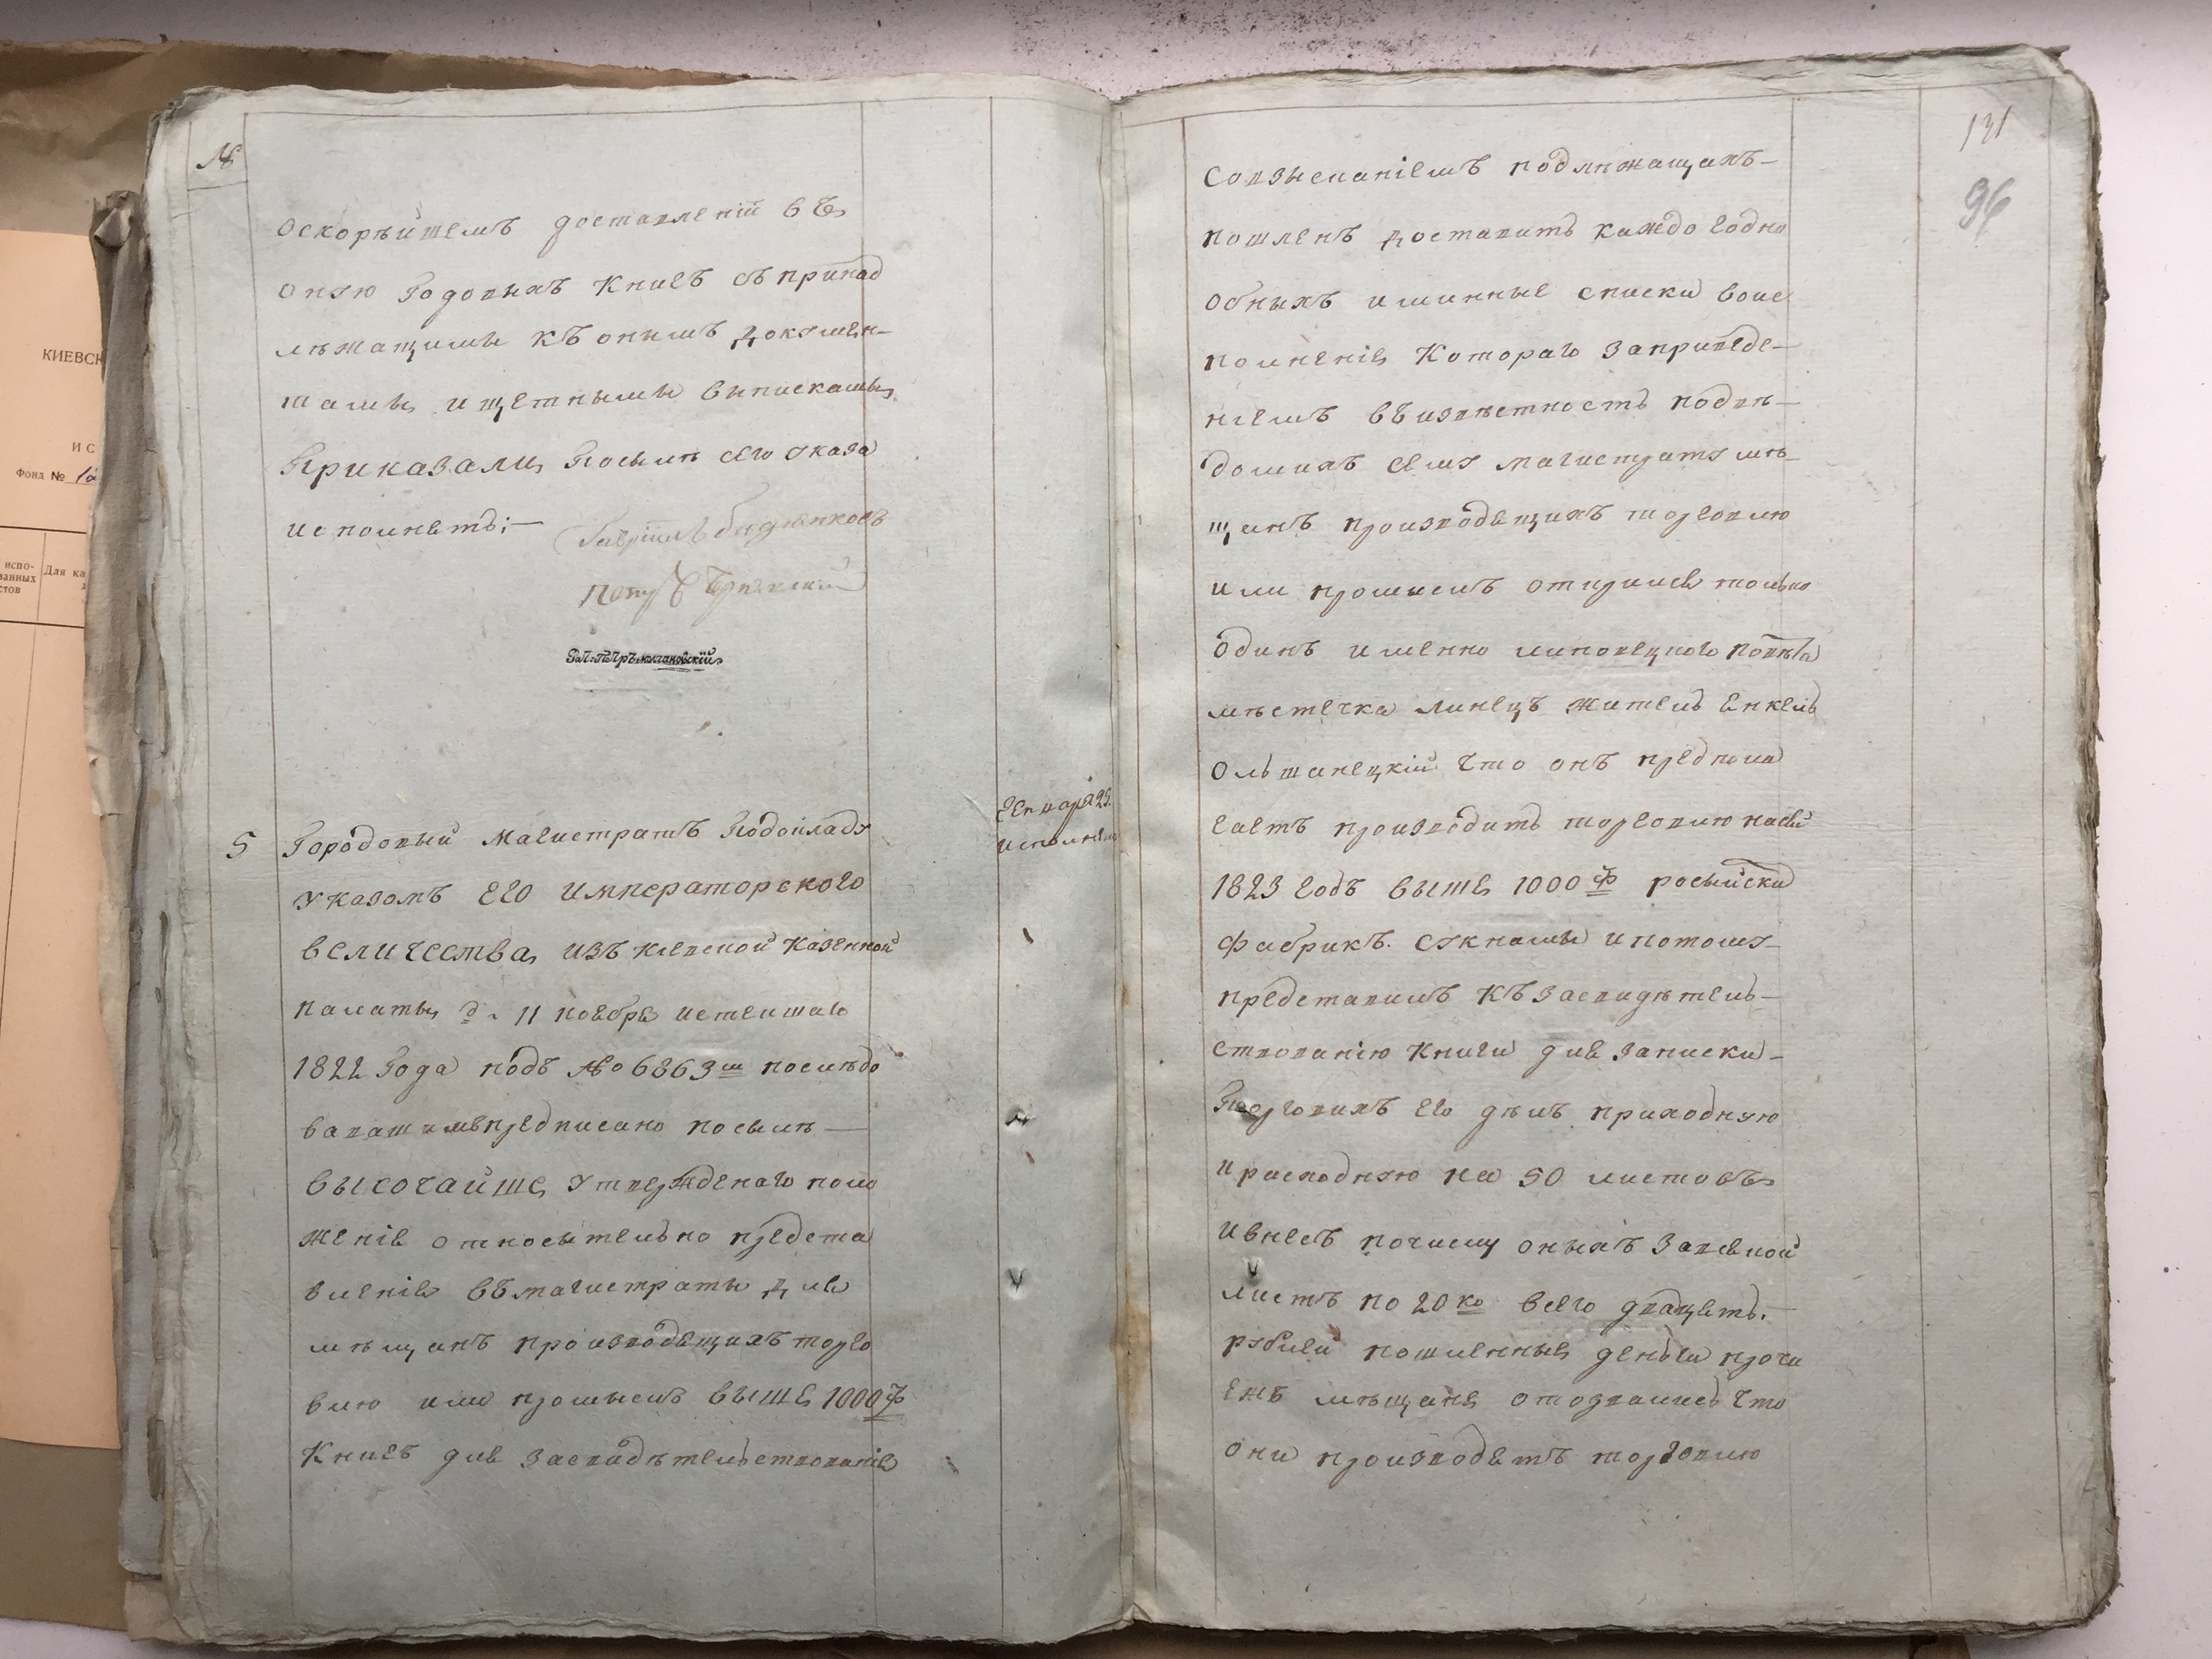 КИЕВСК
И С
Фонд №
испо-
ванных
стов
Для ка
№
оскорѣйшемъ доставленій въ
оную Годовыхъ Книгъ съ принад
лѣжащимы къ онымъ докумен-
тамы, и щетнымы выпискамы,
Приказали, Посылѣ сего указа
исполнеть; —
Гавріилъ
Петръ
5 Городовый Магистратъ Подокладу
указомъ Его Императорского
величества, изъ киевской казенной
палаты, 11 ноебре истекшаго
1822 Года подъ №о 6863 м послѣдо
вавашимъ предписано посылѣ —
высочайше, утвержденаго поло
женіе относытельно предста
вленіе въ магистраты для
мѣщанъ производещихъ торго
влю или промыслъ выше, 1000 р
Книгъ для засвидѣтельствованіе
Генваря 29.
исполнено
131
96
Совзысканіемъ подлѣжащахъ —
пошленъ доставить каждо годно
обныхъ именные списки воис
полненіе, Котораго заприведе-
ніемъ въ извѣстность подвѣ-
домихъ сему магистрату мѣ-
щанъ производещихъ торговлю
или промыслъ открился только
одинъ именно липовецкого повѣта
мѣстечка линецъ житель Енкель
Ольшанецкій что онъ предпола
гаетъ производить торговлю насей
1823 годъ выше, 1000 р росыйски
фабрикъ. сукнамы и потому-
представилъ къ засвидѣтель-
ствованію книги для записки-
Торговихъ его дѣлъ приходную
и расходную на 50 листовъ
ивнесъ почислу оныхъ за всякой
листъ по 20 ко всего дващеть, —
рублей пошленные, деньги прочи
ежъ мѣщане, отозвались что
они производетъ торговлю